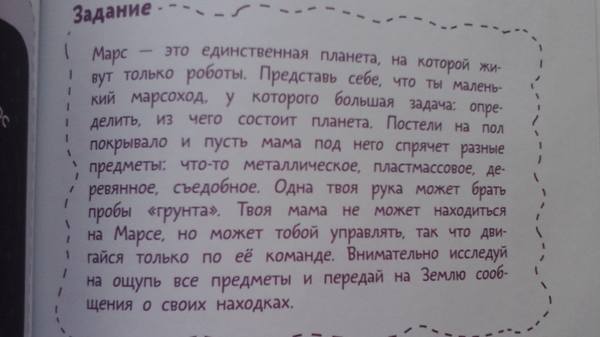 Задание
Марс — это единственная планета, на которой жи-
вут только роботы. Представь себе, что ты малень-
кий марсоход, у которого большая задача: опре-
делить, из чего состоит планета. Постели на пол
покрывало и пусть мама под него спрячет разные
предметы: что-то металлическое, пластмассовое, де-
ревянное, съедобное. Одна твоя рука может брать
пробы «грунта». Твоя мама не может находиться
на Марсе, но может тобой управлять, так что дви-
гайся только по её команде. Внимательно исследуй
на ощупь все предметы и передай на Землю сооб-
щения о своих находках.